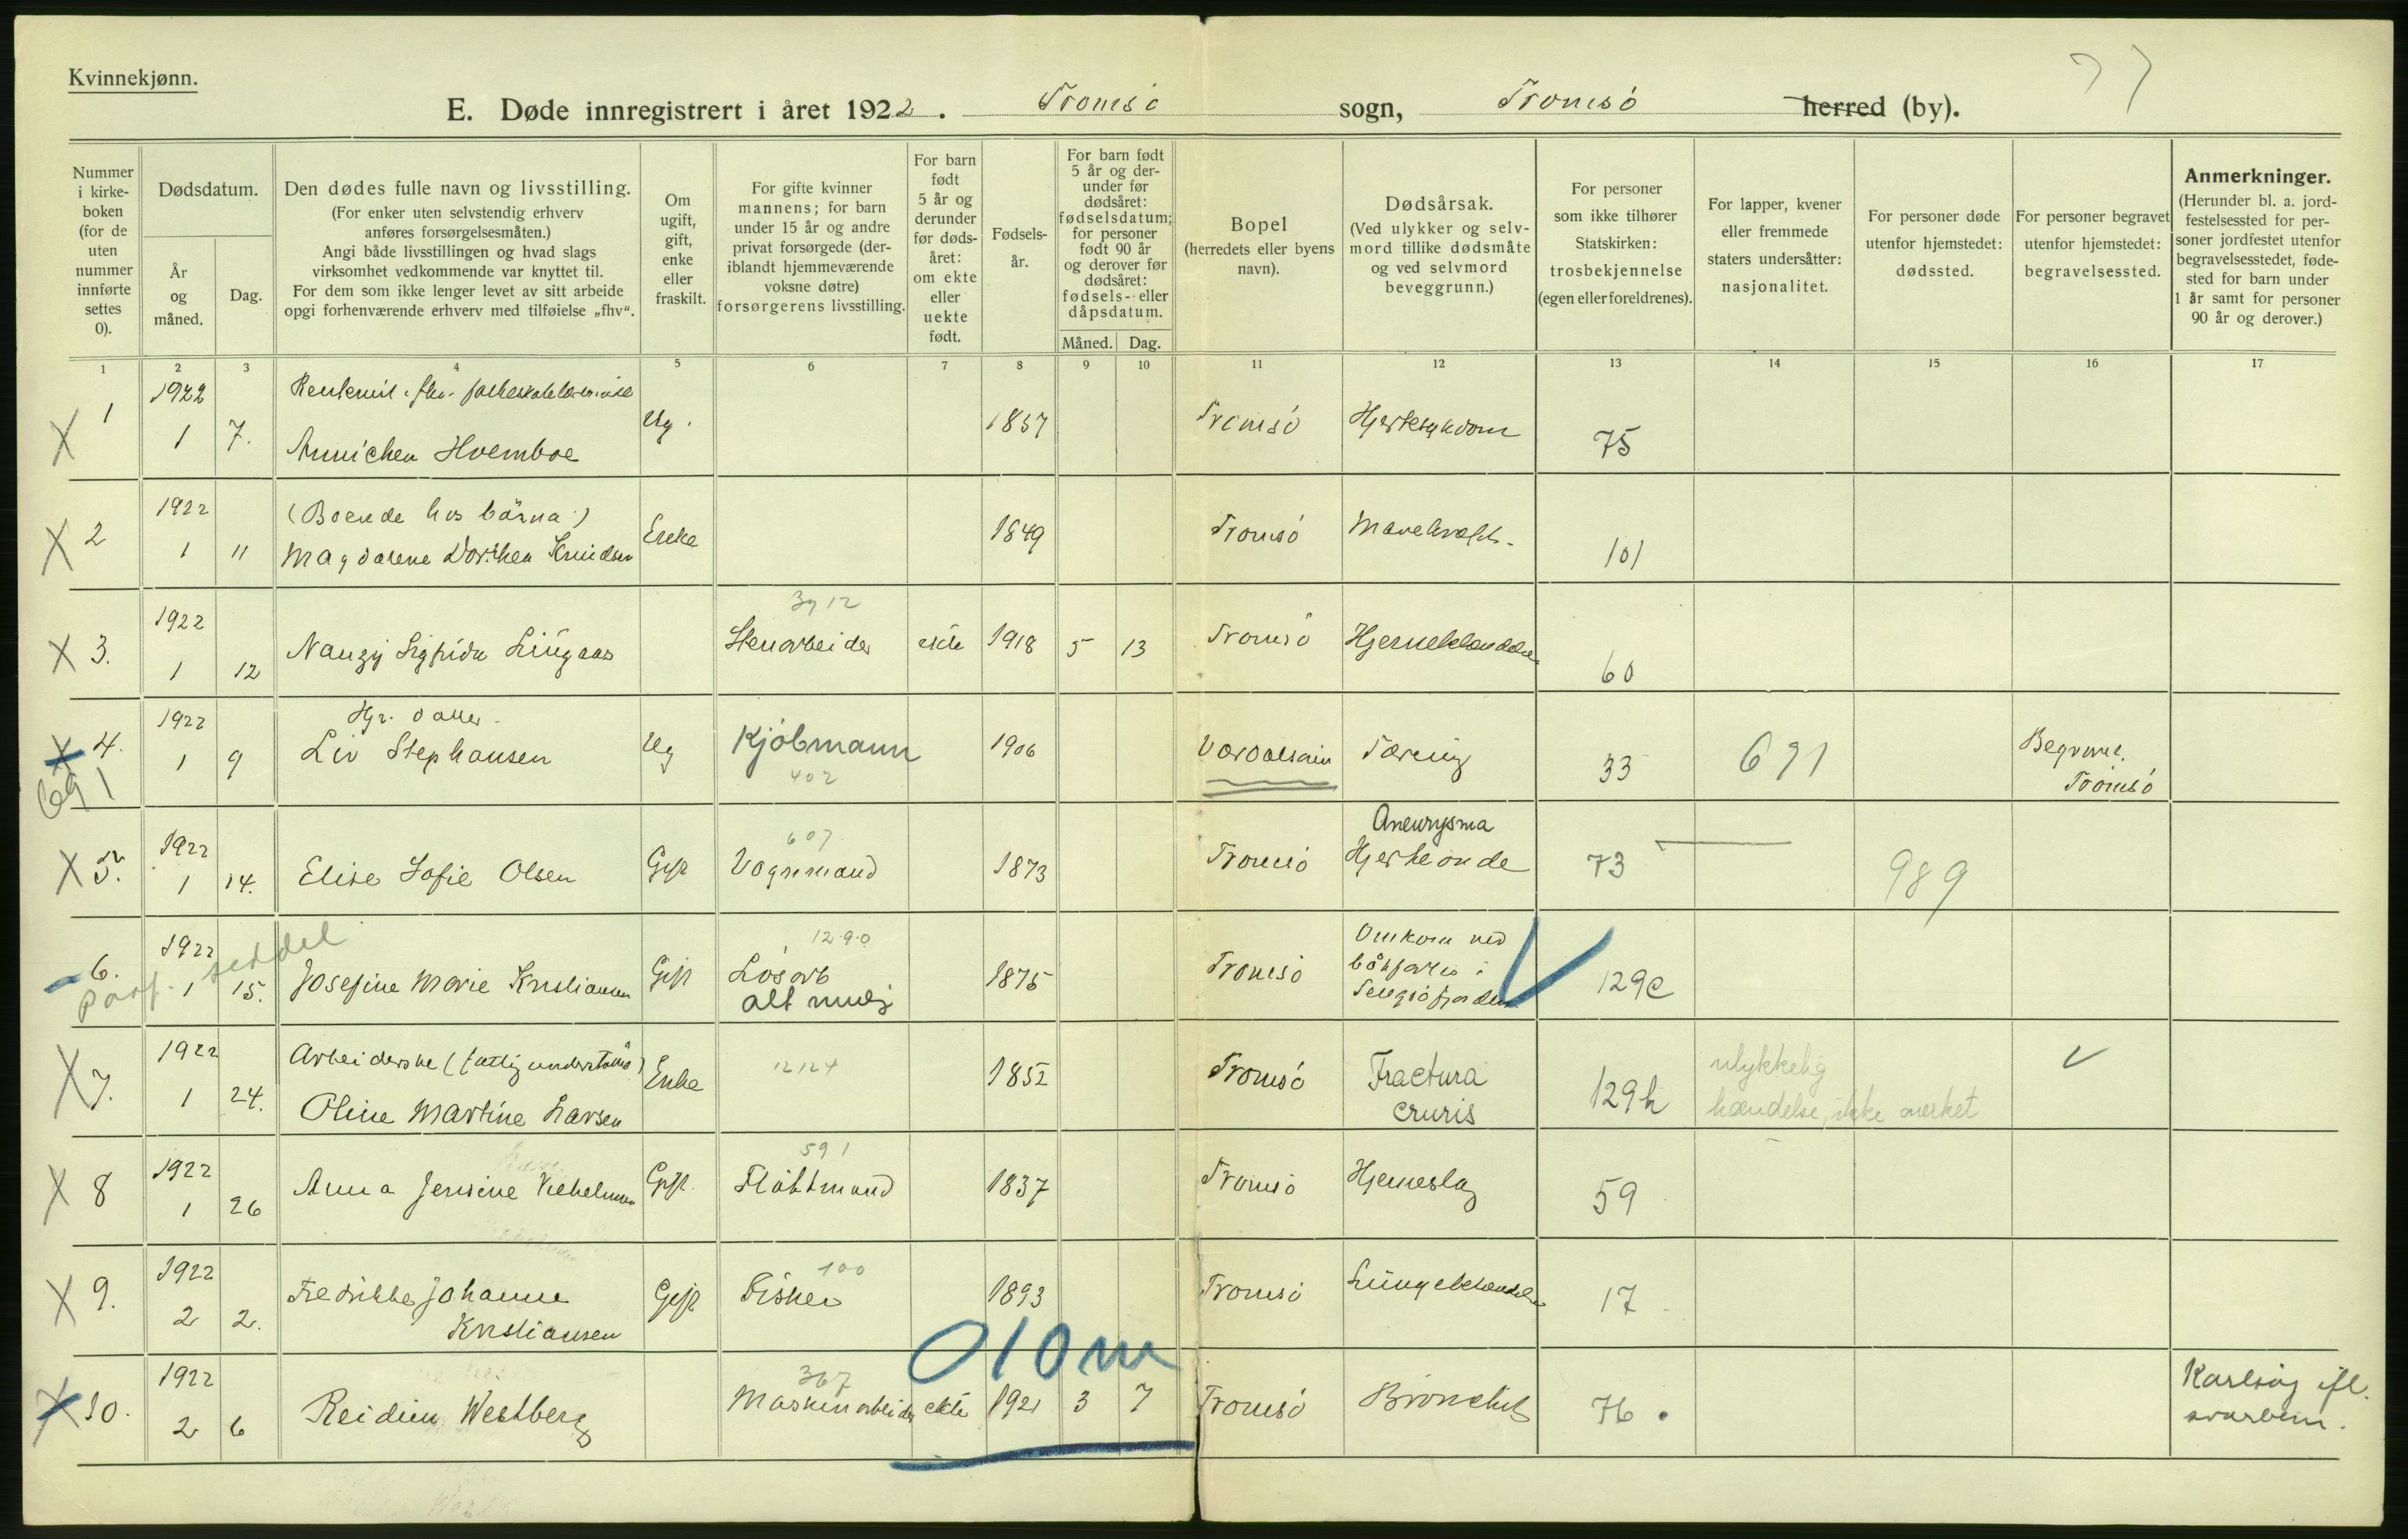 Kvinnekjønn.
77
E. Døde innregistrert i året 1922. Tromsø sogn, Tromsø herred (by).
Nummer i kirke-boken (for de uten nummer innførte settes 0).
Dødsdatum.
År og måned.
Dag.
Den dødes fulle navn og livsstilling.
(For enker uten selvstendig erhverv
anføres forsørgelsesmåten.)
Angi både livsstillingen og hvad slags
virksomhet vedkommende var knyttet til.
For dem som ikke lenger levet av sitt arbeide
opgi forhenværende erhverv med tilføielse „fhv“.
Om ugift, gift, enke eller fraskilt.
For gifte kvinner
mannens; for barn
under 15 år og andre
privat forsørgede (der-
iblandt hjemmeværende
voksne døtre)
forsørgerens livsstilling.
For barn født 5 år og derunder før døds-året: om ekte eller uekte født.
Fødsels-år.
For barn født
5 år og der-
under før
dødsåret:
fødselsdatum;
for personer
født 90 år
og derover før
dødsåret:
fødsels- eller
dåpsdatum.
Måned. Dag.
Bopel
(herredets eller byens
navn).
Dødsårsak.
(Ved ulykker og selv-
mord tillike dødsmåte
og ved selvmord
beveggrunn.)
For personer
som ikke tilhører
Statskirken:
trosbekjennelse
(egen eller foreldrenes).
For lapper, kvener
eller fremmede
staters undersåtter:
nasjonalitet.
For personer døde
utenfor hjemstedet:
dødssted.
For personer begravet
utenfor hjemstedet:
begravelsessted.
Anmerkninger.
(Herunder bl. a. jord-
festelsessted for per-
soner jordfestet utenfor
begravelsesstedet, føde-
sted for barn under
1 år samt for personer
90 år og derover.)
1 2 3 4 5 6 7 8 9 10 11 12 13 14 15 16 17
X 1 1922 1 7. fhv. folkeskolelærerinde
Annichen Hvemboe Ug. 1857 Tromsø Hjertesykdom 75
X 2 1922 1 11 (Boende hos börna)
Magdalene Dorthea Knudsen Enke 1849 Tromsø Mavekræft. 101
3912
X 3. 1922 1 12 Lingaas Stenarbeider ekte 1918 5 13 Tromsø 60
Hjr. datter.
X 4. 1922 1 9 Liv Stephansen Ug Kjöbmann 1906 Tæring 33 691 Begravet.
691 402 Tromsö
607 Aneurysma
X 5. 1922 1 14. Elise Sofie Olsen Gift Vognmand 1873 Tromsö Hjerteonde 73 989
1290 Omkom ved
6. 1922 1 15. Josefine Marie Kristiansen Gift Lösarb Tromsö båtforlis i 129c
seddel alt mulig 1875
X 7. 1922 1 24. Arbeiderske (fattigunderstöttet) Enke 12124 1852 Tromsö Fractura 129h ulykkelig
Oline Martine Larsen cruris hændelse, ikke merket
591
X 8 1922 1 26 Anna Jensine Gift. Flåttmand 1837 Tromsö Hjerneslag 59
100
X 9. 1922 2 2. Fredrikke Johanne Gift Fisker 1893 Tromsö 17
Kristiansen
010 m
367
X 10. 1922 2 6 Reidun Westberg Maskinarbeider ekte 1921 3 7 Tromsö Bronchit 76 Karlsöy ifl.
svarbrev.